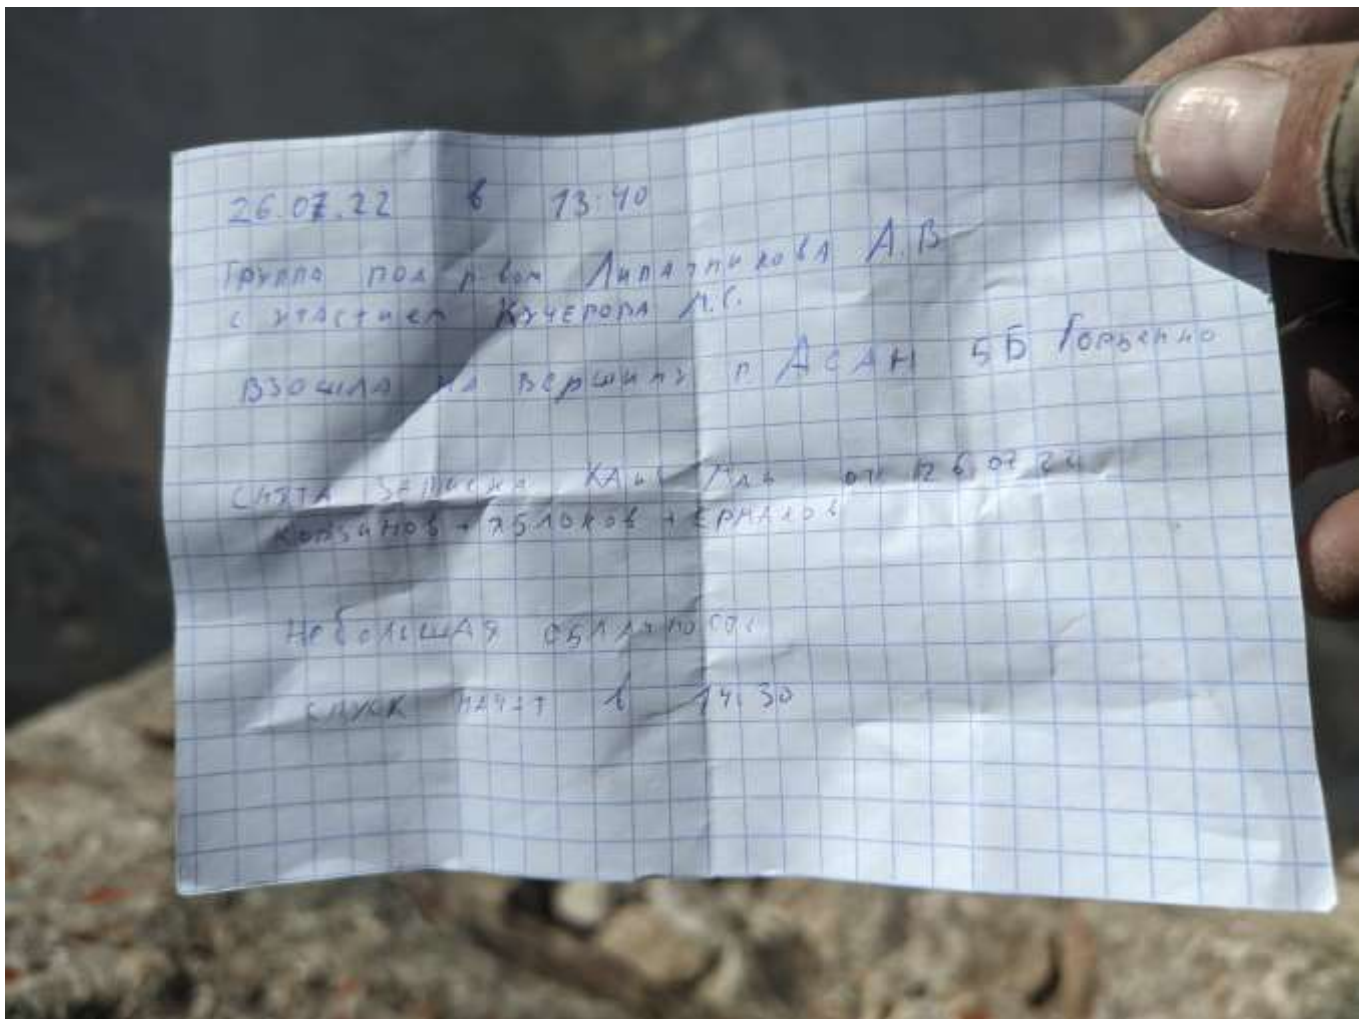 26.07.22 в 13:40
Группа под р-вом Липатникова А.В
с участием Кучерора М.С.
взошла на вершину п Асан 5Б Горbенко
снята записка от 26.07.22
+ Яблоков + Ермаков
Небольшая облачность
спуск начат в 14:30